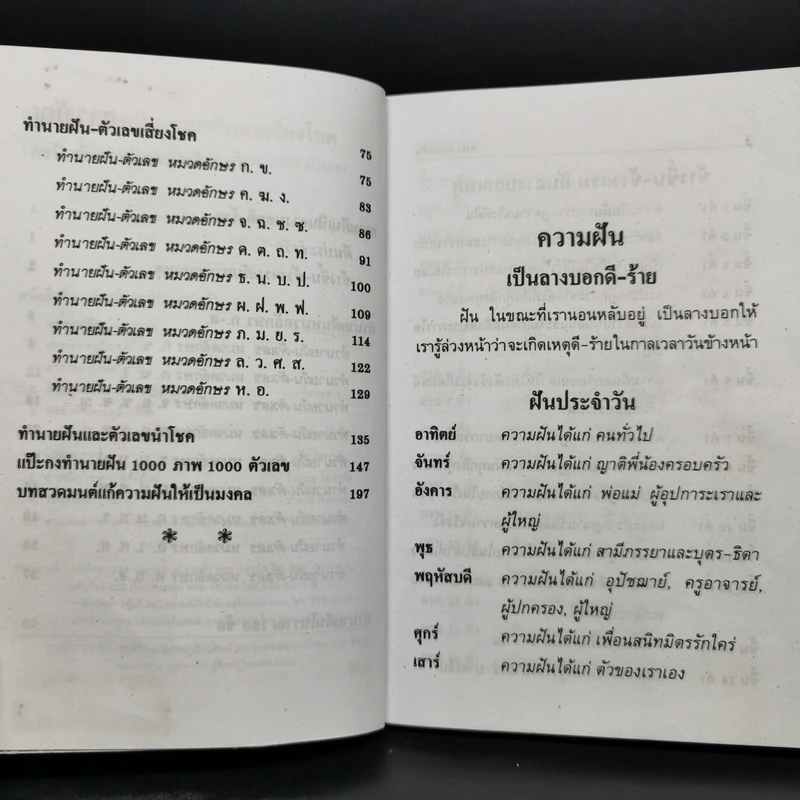 ทำนายฝัน-ตัวเลขเสี่ยงโชค 75
ทำนายฝัน-ตัวเลข หมวดอักษร ก. ข. 75
ทำนายฝัน-ตัวเลข หมวดอักษร ค. ฆ. ง. 83
ทำนายฝัน-ตัวเลข หมวดอักษร จ. ฉ. ช. ซ. 86
ทำนายฝัน-ตัวเลข หมวดอักษร ด. ต. ถ. ท. 91
ทำนายฝัน-ตัวเลข หมวดอักษร ธ. น. บ. ป. 100
ทำนายฝัน-ตัวเลข หมวดอักษร ผ. ฝ. พ. ฟ. 109
ทำนายฝัน-ตัวเลข หมวดอักษร ภ. ม. ย. ร. 114
ทำนายฝัน-ตัวเลข หมวดอักษร ล. ว. ศ. ส. 122
ทำนายฝัน-ตัวเลข หมวดอักษร ห. อ. 129
ทำนายฝันและตัวเลขนำโชค 135
แป๊ะกงทำนายฝัน 1000 ภาพ 1000 ตัวเลข 147
บทสวดมนต์แก้ความฝันให้เป็นมงคล 197
ความฝัน
เป็นลางบอกดี-ร้าย
ฝัน ในขณะที่เรานอนหลับอยู่ เป็นลางบอกให้
เรารู้ล่วงหน้าว่าจะเกิดเหตุดี-ร้ายในกาลเวลาวันข้างหน้า
ฝันประจำวัน
อาทิตย์ ความฝันได้แก่ คนทั่วไป
จันทร์ ความฝันได้แก่ ญาติพี่น้องครอบครัว
อังคาร ความฝันได้แก่ พ่อแม่ ผู้อุปการะเราและ
ผู้ใหญ่
พุธ ความฝันได้แก่ สามีภรรยาและบุตร-ธิดา
พฤหัสบดี ความฝันได้แก่ อุปัชฌาย์, ครูอาจารย์,
ผู้ปกครอง, ผู้ใหญ่
ศุกร์ ความฝันได้แก่ เพื่อนสนิทมิตรรักใคร่
เสาร์ ความฝันได้แก่ ตัวของเราเอง